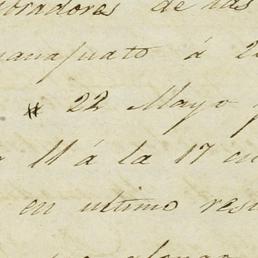 bradores de las
uanajuato á 2
# 22 Mayo
11 á la 17 en
en ultimo res